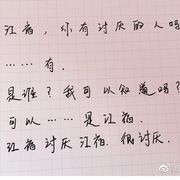 江宿，你有讨厌的人吗
……有.
是谁？我可以知道吗？
可以……是江宿.
江宿讨厌江宿.很讨厌.